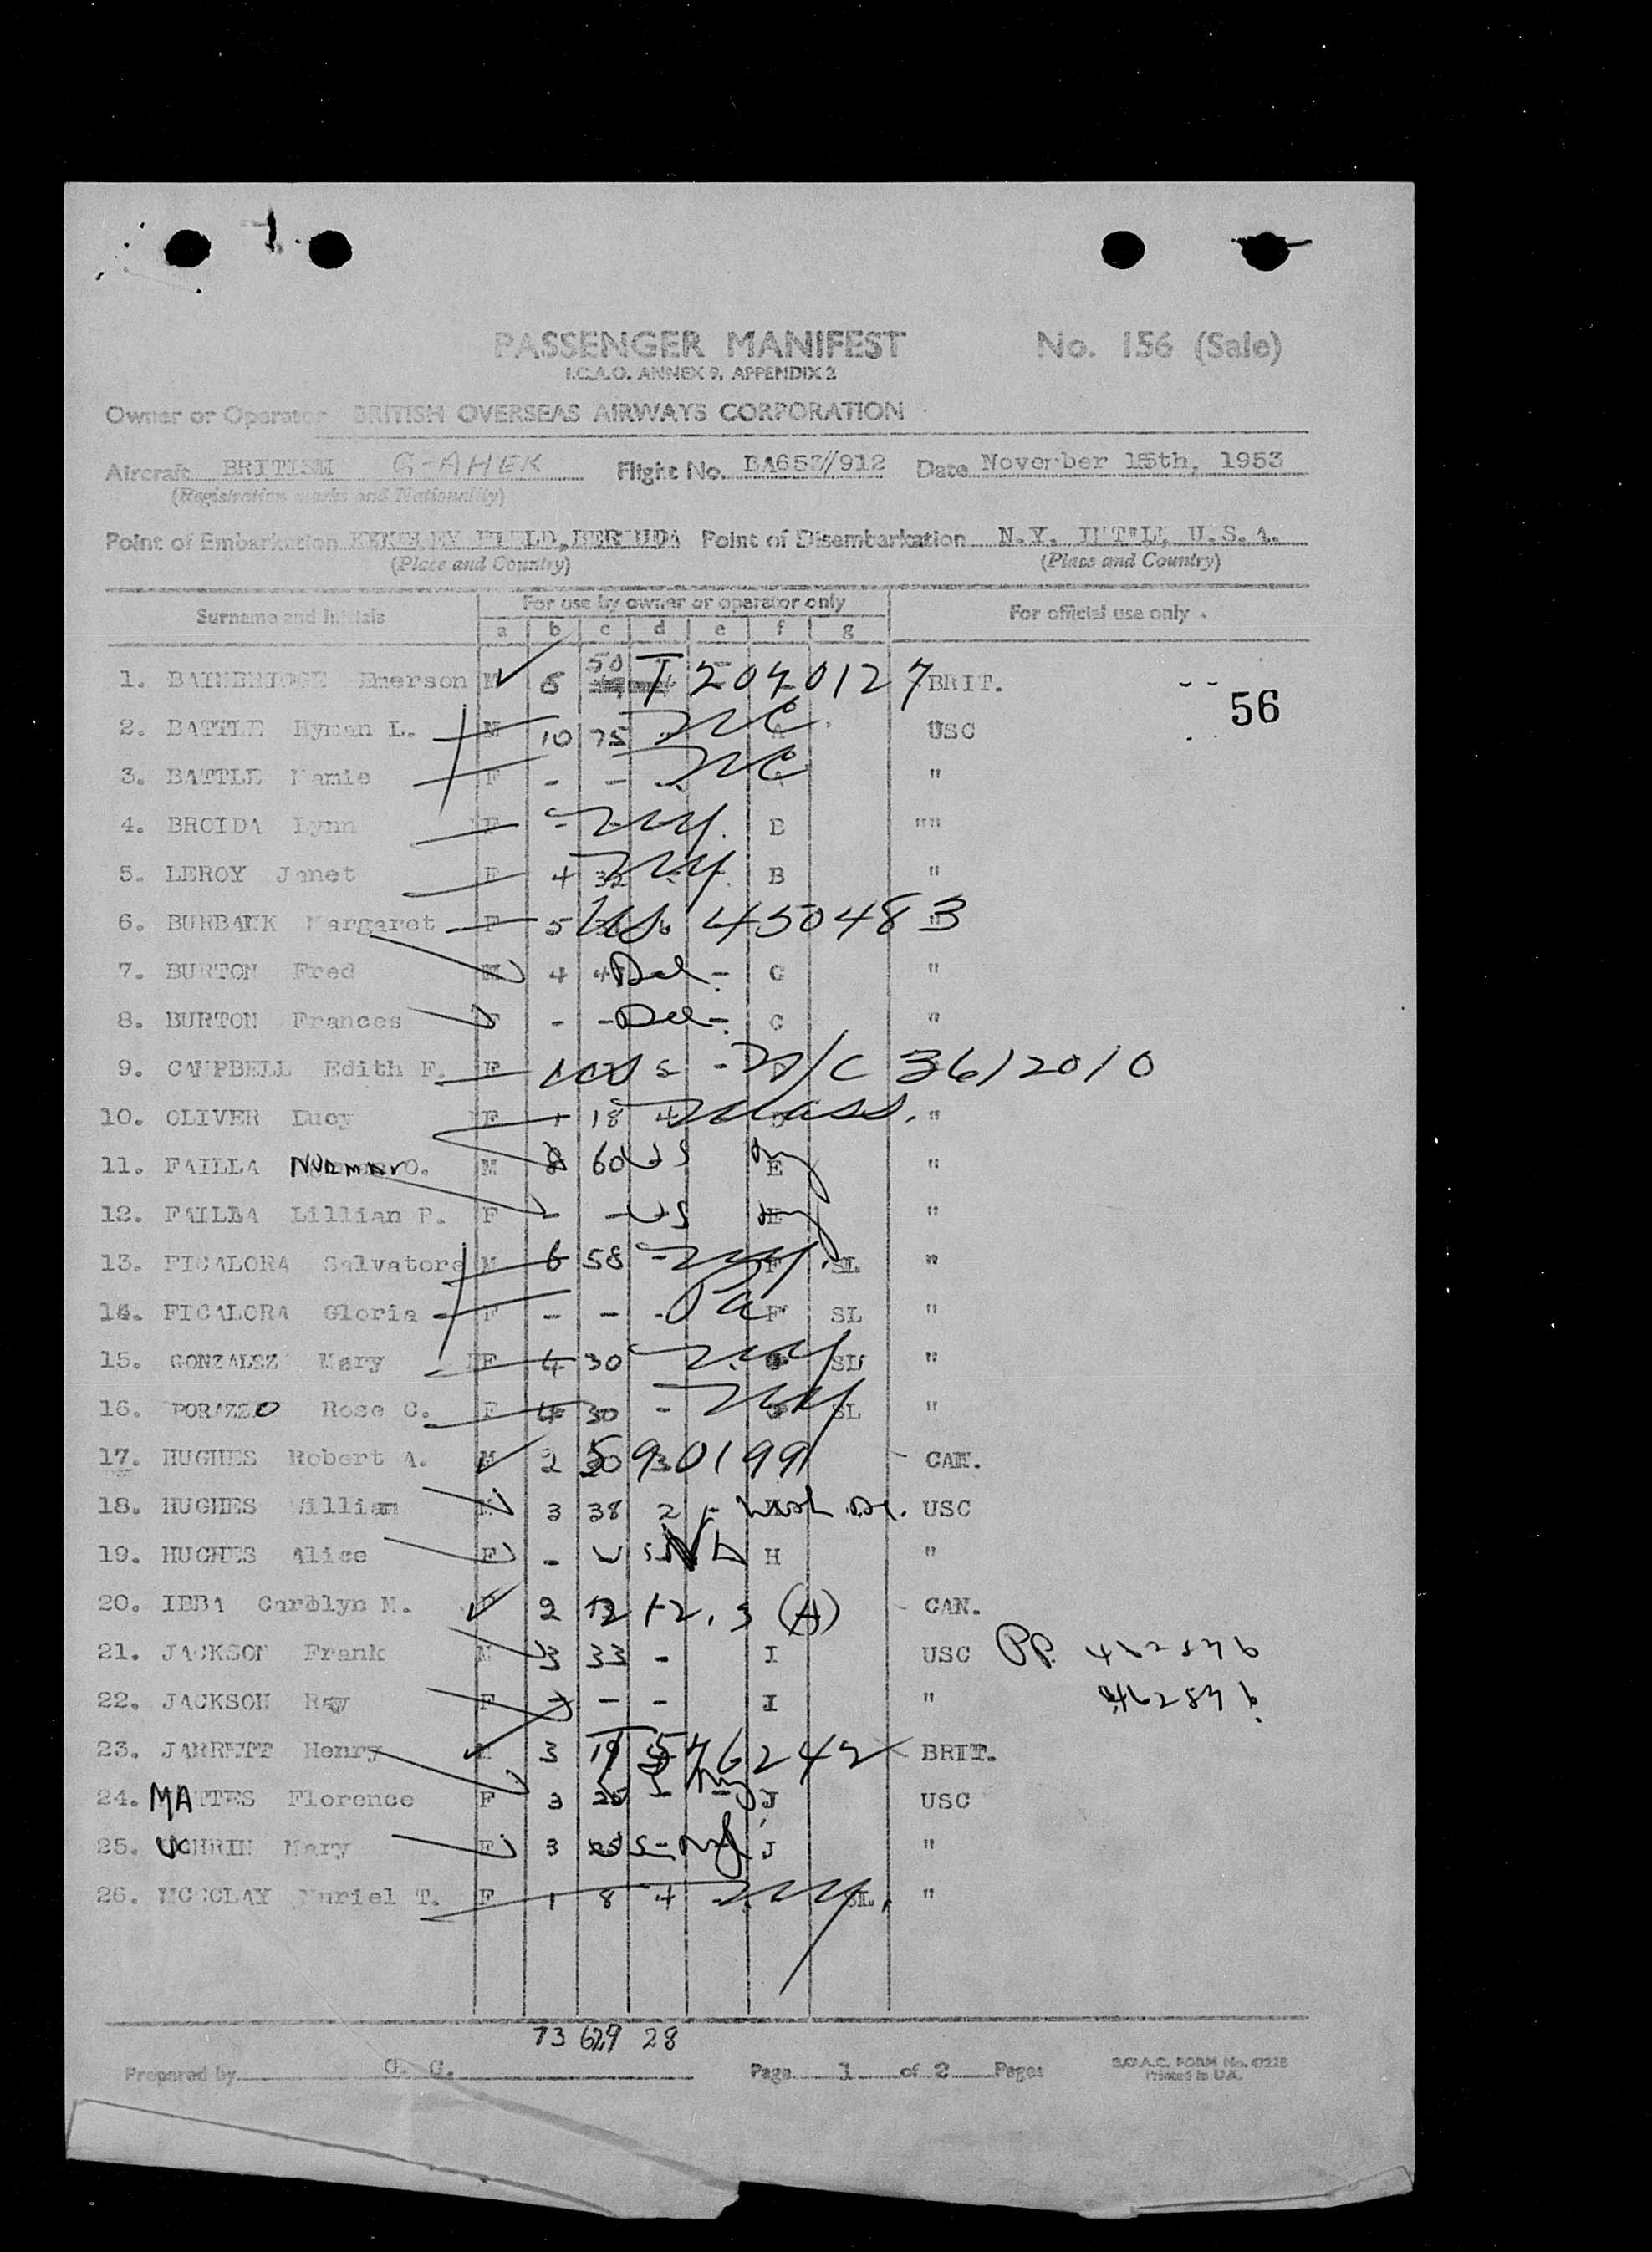 PASSENGER MANIFEST No. 156 (Sale)
I.C.A.O. ANNEX 9, APPENDIX 2
Owner or Operator BRITISH OVERSEAS AIRWAYS CORPORATION
Aircraft BRITISH G-AHEK Flight No. BA653//912 Date November 15th, 1953
(Registration marks and Nationality)
Point of Embarkation FIELD, BERMUDA Point of Disembarkation N.Y. INT'L, U.S.A.
(Place and Country) (Place and Country)
Surname and Initials For use by owner or operator only For official use only
a b c d e f g
1. BAINBRIDGE Emerson M 6 50 T 2040127 BRIT.
56
2. BATTLE Hyman L. M 10 75 NC A USC
3. BATTLE Mamie F - - NC "
4. BROIDA Lynn F - NY. B ""
5. LEROY Janet F 4 32 NY. B "
6. BURBANK Margaret F 5 US. 450483 "
7. BURTON Fred M 4 Del - C "
8. BURTON Frances F - - Del - C "
9. CAMPBELL Edith F. F N/C 3612010
10. OLIVER Lucy F 1 18 4 Mass. "
11. FAILLA NORMAN O. M 8 60 US NY E "
12. FAILLA Lillian P. F - - US NY E "
13. FICALORA Salvatore M 6 58 - NY. F SL "
14. FICALORA Gloria F - - - Pa F SL "
15. GONZALEZ Mary F 4 30 NY G SL "
16. PORAZZO Rose C. F 4 30 - NY G SL "
17. HUGHES Robert A. M 2 590199 CAN.
18. HUGHES William M 3 38 2 - Wash. USC
19. HUGHES Alice F - H "
20. IEBA Carolyn M. F 2 12 (A) CAN.
21. JACKSON Frank M 3 33 - I USC PP.
22. JACKSON Ray F - - - I "
23. JARRETT Henry M 3 BRIT.
24. MATTES Florence F 3 - NY J USC
25. UCHRIN Mary F 3 J "
26. MCCOLAY Muriel T. F 1 8 4 - NY. SL "
73 629 28
Prepared by G. G. Page 1 of 2 Pages B.O.A.C. FORM No.
Printed in